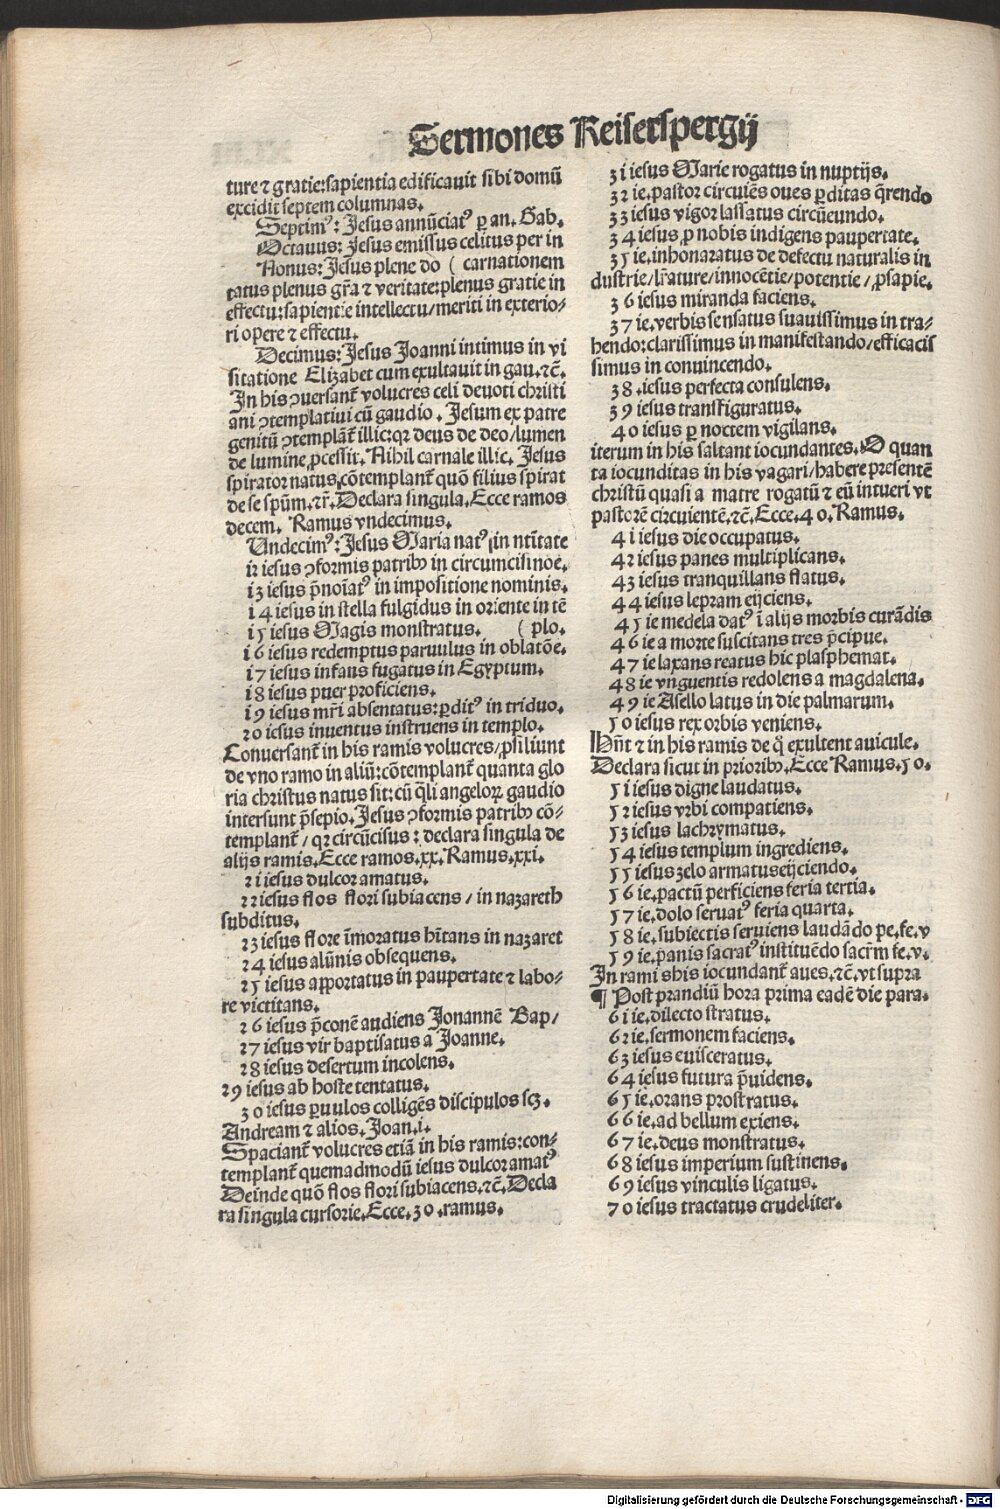 Sermones Keiserspergij
ture ⁊ gratie:sapientia edificauit sibi domū
excidit septem columnas.
Septimꝰ: Jesus annūciatꝰ ꝑ an. Gab.
Octauus: Jesus emissus celitus per in
Nonus: Jesus plene do ( carnationem
tatus plenus gr̄a ⁊ veritate:plenus gratie in
effectu:sapientie intellectu/meriti in exterio⸗
ri opere ⁊ effectu.
Decimus: Jesus Joanni intimus in vi
sitatione Elizabet cum exultauit in gau.⁊c̄.
In his ꝯuersant̄ volucres celi deuoti christi
ani ꝯtemplatiui cū gaudio. Jesum ex patre
genitū ꝯtemplāt̄ illic:qꝛ deus de deo/lumen
de lumine ꝓcessit. Nihil carnale illic. Jesus
spirator natus cōtemplant̄ quō filius spirat
de se spūm.⁊c̄. Declara singula. Ecce ramos
decem. Ramus vndecimus.
Undecimꝰ: Jesus Maria natꝰ in nt̄itate
12 iesus ꝯformis patribꝫ in circumcisinoē.
13 iesus p̄noīatꝰ in impositione nominis.
14 iesus in stella fulgidus in oriente in tē
15 iesus Magis monstratus. ( plo.
16 iesus redemptus paruulus in oblatōe.
17 iesus infans fugatus in Egyptum.
18 iesus puer proficiens.
19 iesus mr̄i absentatus:ꝑditꝰ in triduo.
20 iesus inuentus instruens in templo.
Conuersant̄ in his ramis volucres/ꝓsiliunt
de vno ramo in aliū:cōtemplant̄ quanta glo
ria christus natus sit:cū q̄li angeloꝝ gaudio
intersunt p̄sepio. Jesus ꝯformis patribꝫ cō⸗
templant̄/qꝛ circūcisus: declara singula de
alijs ramis. Ecce ramos.xx. Ramus.xxi.
21 iesus dulcor amatus.
22 iesus flos flori subiacens/in nazareth
subditus.
23 iesus flore īmoratus hītans in nazaret
24 iesus alūnis obsequens.
25 iesus apportatus in paupertate ⁊ labo⸗
re victitans.
26 iesus p̄conē audiens Jonannē Bap/
27 iesus vir baptisatus a Joanne.
28 iesus desertum incolens.
29 iesus ab hoste tentatus.
30 iesus ꝑuulos colligēs discipulos scꝫ.
Andream ⁊ alios. Joan.i.
Spaciant̄ volucres etiā in his ramis:con⸗
templant̄ quemadmodū iesus dulcor amatꝰ
Deinde quō flos flori subiacens.⁊c̄. Decla
ra singula cursorie. Ecce.30.ramus.
31 iesus Marie rogatus in nuptijs.
32 ie.pastor circuiēs oues ꝑditas q̄rendo
33 iesus vigor lassatus circūeundo.
34 iesus ꝓ nobis indigens paupertate.
35 ie.inhonaratus de defectu naturalis in
dustrie/lr̄ature/innocētie/potentie/ꝓsapie.
36 iesus miranda faciens.
37 ie.verbis sensatus suauissimus in tra⸗
hendo:clarissimus in manifestando/efficacis
simus in conuincendo.
38 .iesus perfecta consulens.
39 iesus transfiguratus.
40 iesus ꝑ noctem vigilans.
iterum in his saltant iocundantes. O quan
ta iocunditas in his vagari/habere presentē
christū quasi a matre rogatū ⁊ eū intueri vt
pastorē circuientē.⁊c̄. Ecce.40. Ramus.
41 iesus die occupatus.
42 iesus panes multiplicans.
43 iesus tranquillans flatus.
44 iesus lepram eijciens.
45 ie medela datꝰ ī alijs morbis curādis
46 ie a morte suscitans tres p̄cipue.
47 ie laxans reatus hic plasphemat.
48 ie vnguentis redolens a magdalena.
49 ie Asello latus in die palmarum.
50 iesus rex orbis veniens.
Hn̄t ⁊ in his ramis de q̄ exultent auicule.
Declara sicut in prioribꝫ. Ecce Ramus.50.
51 iesus digne laudatus.
52 iesus vrbi compatiens.
53 iesus lachrymatus.
54 iesus templum ingrediens.
55 iesus zelo armatus eijciendo.
56 ie.pactū perficiens feria tertia.
57 ie.dolo seruatꝰ feria quarta.
58 ie.subiectis seruiens laudādo pe.fe.v
59 ie.panis sacratꝰ instituēdo sacr̄m fe.v.
In rami shis iocundant̄ aues.⁊c̄.vt supra
¶ Post prandiū hora prima eadē die para.
61 ie.dilecto stratus.
62 ie.sermonem faciens.
63 iesus euisceratus.
64 iesus futura p̄uidens.
65 ie.orans prostratus.
66 ie.ad bellum exiens.
67 ie.deus monstratus.
68 iesus imperium sustinens.
69 iesus vinculis ligatus.
70 iesus tractatus crudeliter.
Digitalisierung gefördert durch die Deutsche Forschungsgemeinschaft - DFG